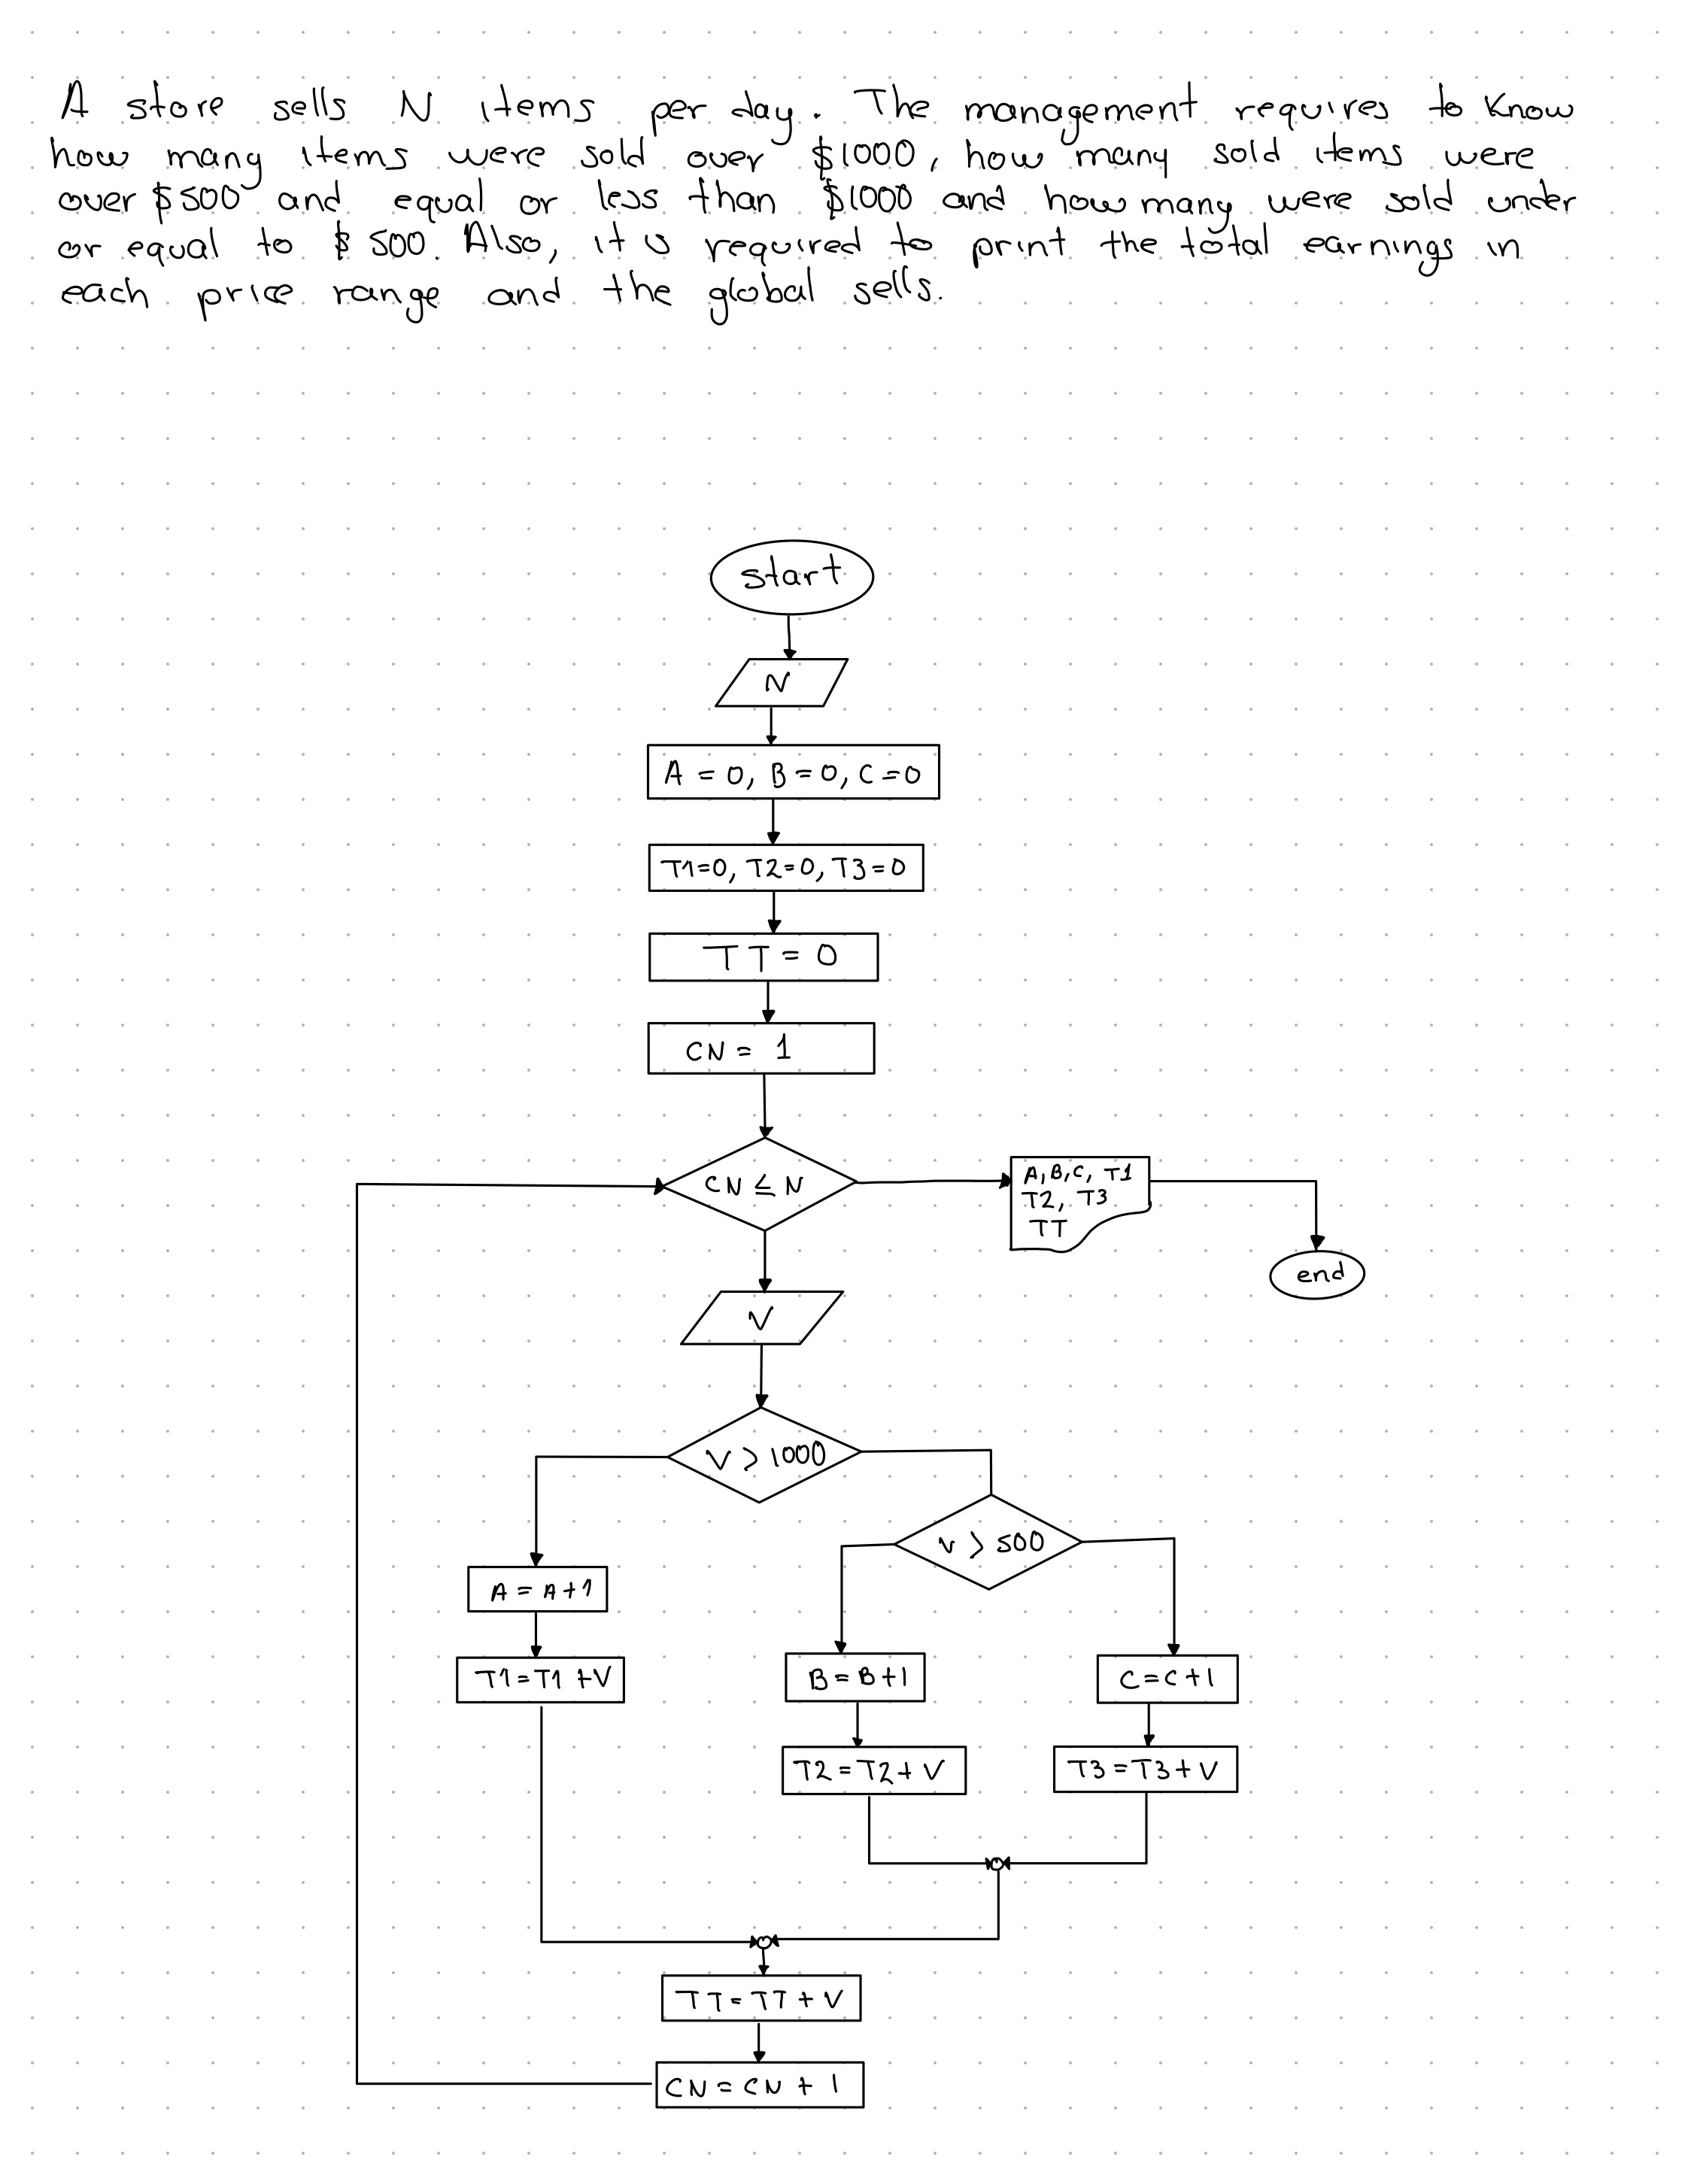 A store sells N items per day. The management requires to know
how many items were sold over $1000, how many sold items were
over $500 and equal or less than $1000 and how many were sold under
or equal to $500. Also, it is required to print the total earnings in
each price range and the global sells.
start
N
A = 0, B = 0, C = 0
T1=0, T2=0, T3=0
TT = 0
CN = 1
CN ≤ N
A, B, C, T1
T2, T3
TT
end
V
V > 1000
V > 500
A = A+1
T1=T1+V
B=B+1
C=C+1
T2=T2+V
T3=T3+V
TT=TT+V
CN=CN+1